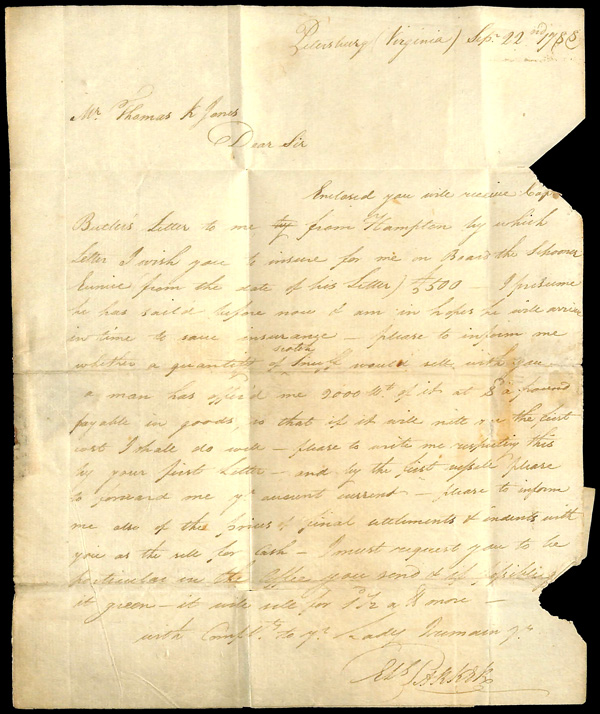 Petersburg (Virginia) Sepr. 22nd 1788
Mr. Thomas K Jones
Dear Sir
Enclosed you will receive Capt
Butler's Letter to me by from Hampton by which
Letter I wish you to insure for me on Board the Schooner
Eunice from the date of his Letter) 500 - I presume
he has sail'd before now & am in hopes he will arrive
in time to save insurance - please to inform me
scotch
whether a quantity of Snuff would sell with you
a man has offer'd me 2000 lbt. of it at a pound
payable in goods, so that if it will nett me the last
cost I shall do well - please to write me respecting this
by your first Letter - and by the first vessel please
to forward me yr account current - please to inform
me also of the prices of final settlements & indents with
you as the sell for Cash - I must request you to be
particular in the Coffee you send & if possible
it green - it will sell for more -
with Complts. to yr. Lady Remain yr
PARKER